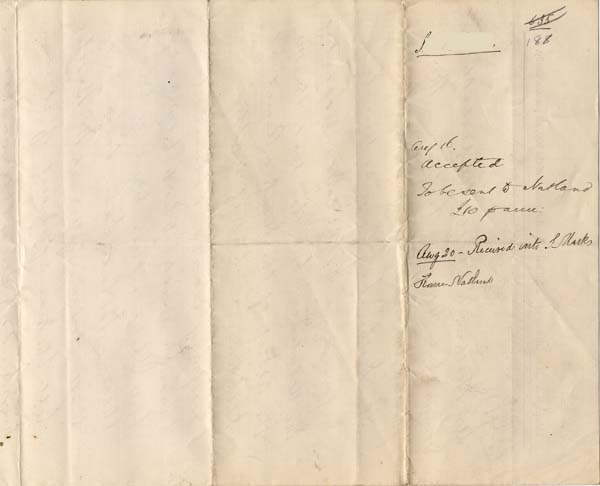 655
188
S.
Aug 16.
Accepted
To be sent to Natland
£10 p ann:
Aug 20 - Received into S. Marks
Home Natland